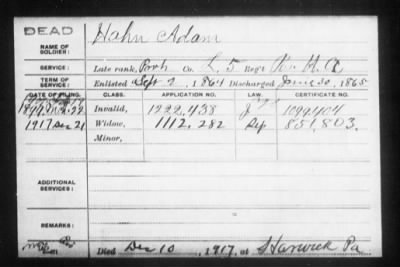 DEAD
NAME OF SOLDIER: Hahn Adam
SERVICE: Late rank, Prvt Co. L, 5 Reg't Pa. H. A.
TERM OF SERVICE: Enlisted Sept 2, 1864 Discharged June 30, 1865
DATE OF FILING. CLASS. APPLICATION NO. LAW. CERTIFICATE NO.
Invalid, 1222,438 1099404
1917 Dec 21 Widow, 1112,282 851,803.
Minor,
ADDITIONAL SERVICES:
REMARKS:
Died Dec 10, 1917, at Harwick Pa